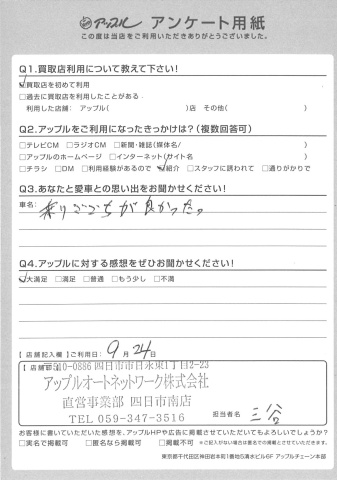 アップル アンケート用紙
この度は当店をご利用いただきありがとうございました。
Q1.買取店利用について教えて下さい!
☑買取店を初めて利用
□過去に買取店を利用したことがある
利用した店舗: アップル( )店 その他( )
Q2.アップルをご利用になったきっかけは?(複数回答可)
□テレビCM □ラジオCM □新聞・雑誌(媒体名/ )
□アップルのホームページ □インターネット(サイト名 )
□チラシ □DM □利用経験があるので ☑紹介 □スタッフに誘われて □通りがかりで
Q3.あなたと愛車との思い出をお聞かせください!
車名:
乗りごごちが良かったっ
Q4.アップルに対する感想をぜひお聞かせください!
☑大満足 □満足 □普通 □もう少し □不満
【店舗記入欄】ご利用日: 9月24日
【店舗
10-0886 四日市市日永東1丁目2-23
アップルオートネットワーク株式会社
直営事業部 四日市南店
TEL 059-347-3516
担当者名 三谷
お客様に書いていただいた感想を、アップルHPや広告に掲載させていただいてもよろしいでしょうか?
□実名で掲載可 □匿名なら掲載可 □掲載不可 ※ご記入がない場合は匿名での掲載とさせていただきます。
東京都千代田区神田岩本町1番地5清水ビル6F アップルチェーン本部